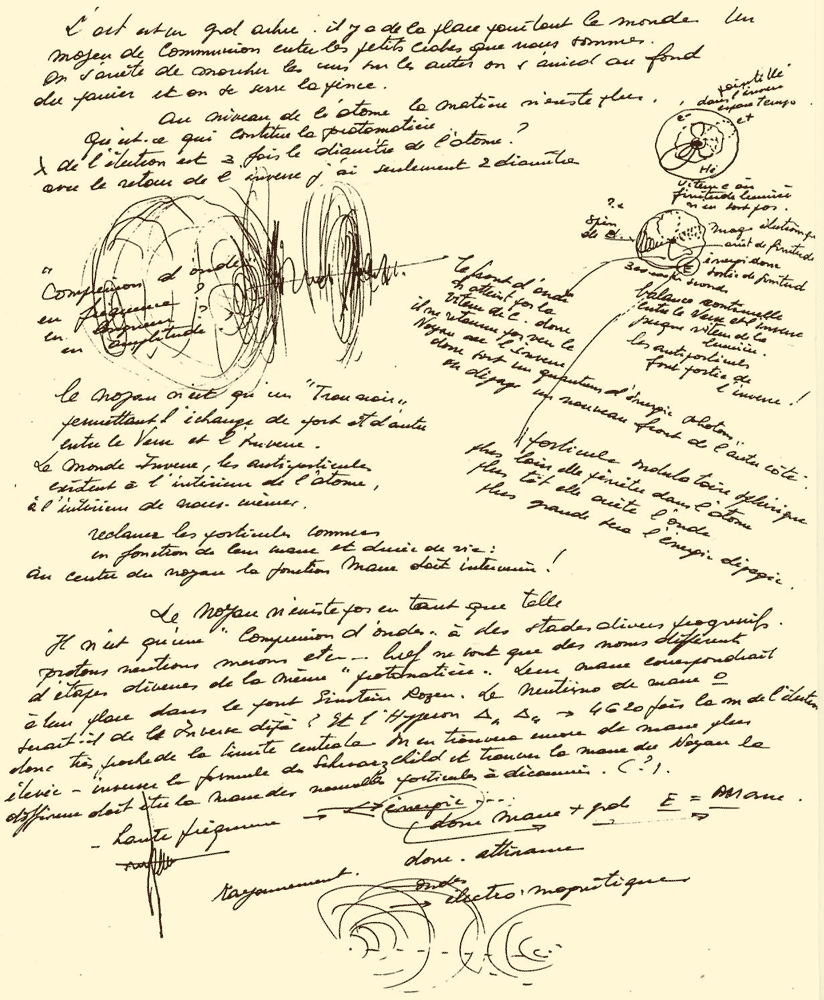 L'art est un grd arbre. il y a de la place pour tout le monde. Un
moyen de Communion entre les petits crabes que nous sommes.
On s'arrête de marcher les uns sur les autres on s'assied au fond
du panier et on se serre la pince.
Au niveau de l'atome la matière n'existe plus.
Qu'est-ce qui constitue la protomatière
λ de l'électron est 3 fois le diamètre de l'atome ?
avec le retour de l'inverse j'ai seulement 2 diamètre
pointillé
dans l'inverse
espace temps
e-
e+
He
vitesse c ou
finitude lumière
n'en sort pas.
?
spin
de
énergie donc
sortie de finitud
balance continuelle
entre le Verse et l'inverse
jusque vitesse de la
lumière.
les antiparticules
font partie de
l'inverse !
"
Compression d'onde "
en fréquence ?
en longueur ?
en amplitude
le front d'onde
atteint par la
vitesse de l. donc
il ne retourne pas vers le
Noyau mais l'inverse
donc sort un quantum d'énergie "photon"
on dégage un nouveau front de l'autre coté.
le noyau n'est qu'un "Trou noir"
permettant l'échange de part et d'autre
entre le Verse et l'Inverse.
Le Monde Inverse, les antiparticules
existent à l'intérieur de l'atome,
à l'intérieur de nous-mêmes.
particule ondulatoire sphérique
plus loin elle pénètre dans l'atome
plus tôt elle arrête l'onde
plus grande sera l'énergie dégagée.
reclasser les particules connues
en fonction de leur masse et durée de vie :
au centre du noyau la fonction Masse doit intervenir !
Le Noyau n'existe pas en tant que telle
Il n'est qu'une "Compression d'ondes" à des stades divers progressifs.
protons neutrons mesons etc -- bref ne sont que des noms différents
d'étapes diverses de la même "protomatière". Leur masse correspondrait
à leur place dans le pont Einstein Rozen. Le Neutrino de masse 0
serait-il de l'Inverse déjà ? Et l'Hyperon → 4620 fois la m de l'électron
donc très proche de la limite centrale On en trouvera encore de masse plus
élevée - inverser la formule de Schwarzchild et trouver la masse du Noyau la
différence doit être la masse des nouvelles particules à découvrir. (?).
- haute fréquence → énergie ---
donc masse + grd E = masse.
donc. attirance
Rayonnement.
ondes
→ électro-magnétiques